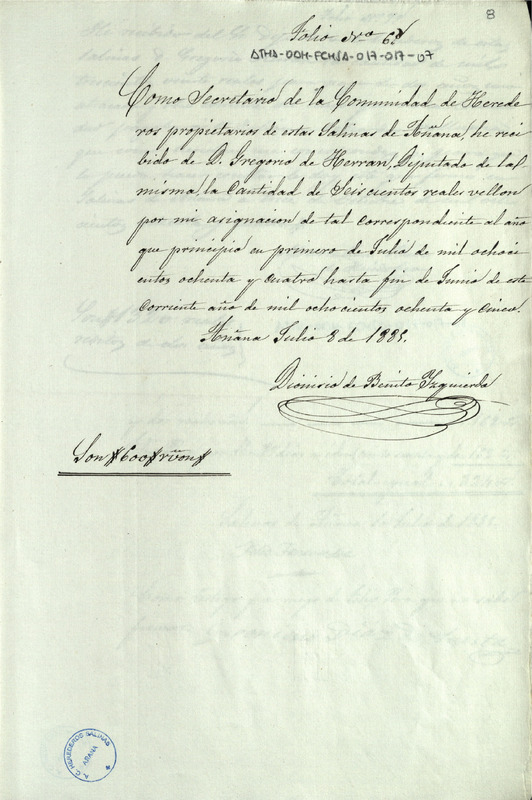 8
Folio Nro 6º
ATHA-DAH-FCHSA-017-017-07
Como Secretario de la Comunidad de Herede
ros propietarios de estas Salinas de Añana, he reci
bido de D. Gregorio de Herran, Diputado de la
misma, la Cantidad de Seiscientos reales vellon
por mi asignacion de tal correspondiente al año
que principio en primero de Julio de mil ochoci
entos ochenta y cuatro hasta fin de Junio de este
corriente año de mil ochocientos ochenta y cinco.
Añana Julio 8 de 1885.
Dionisio de Benito Yzquierdo
Son # 600 # rvon #
A. C. HEREDEROS SALINAS
AÑANA